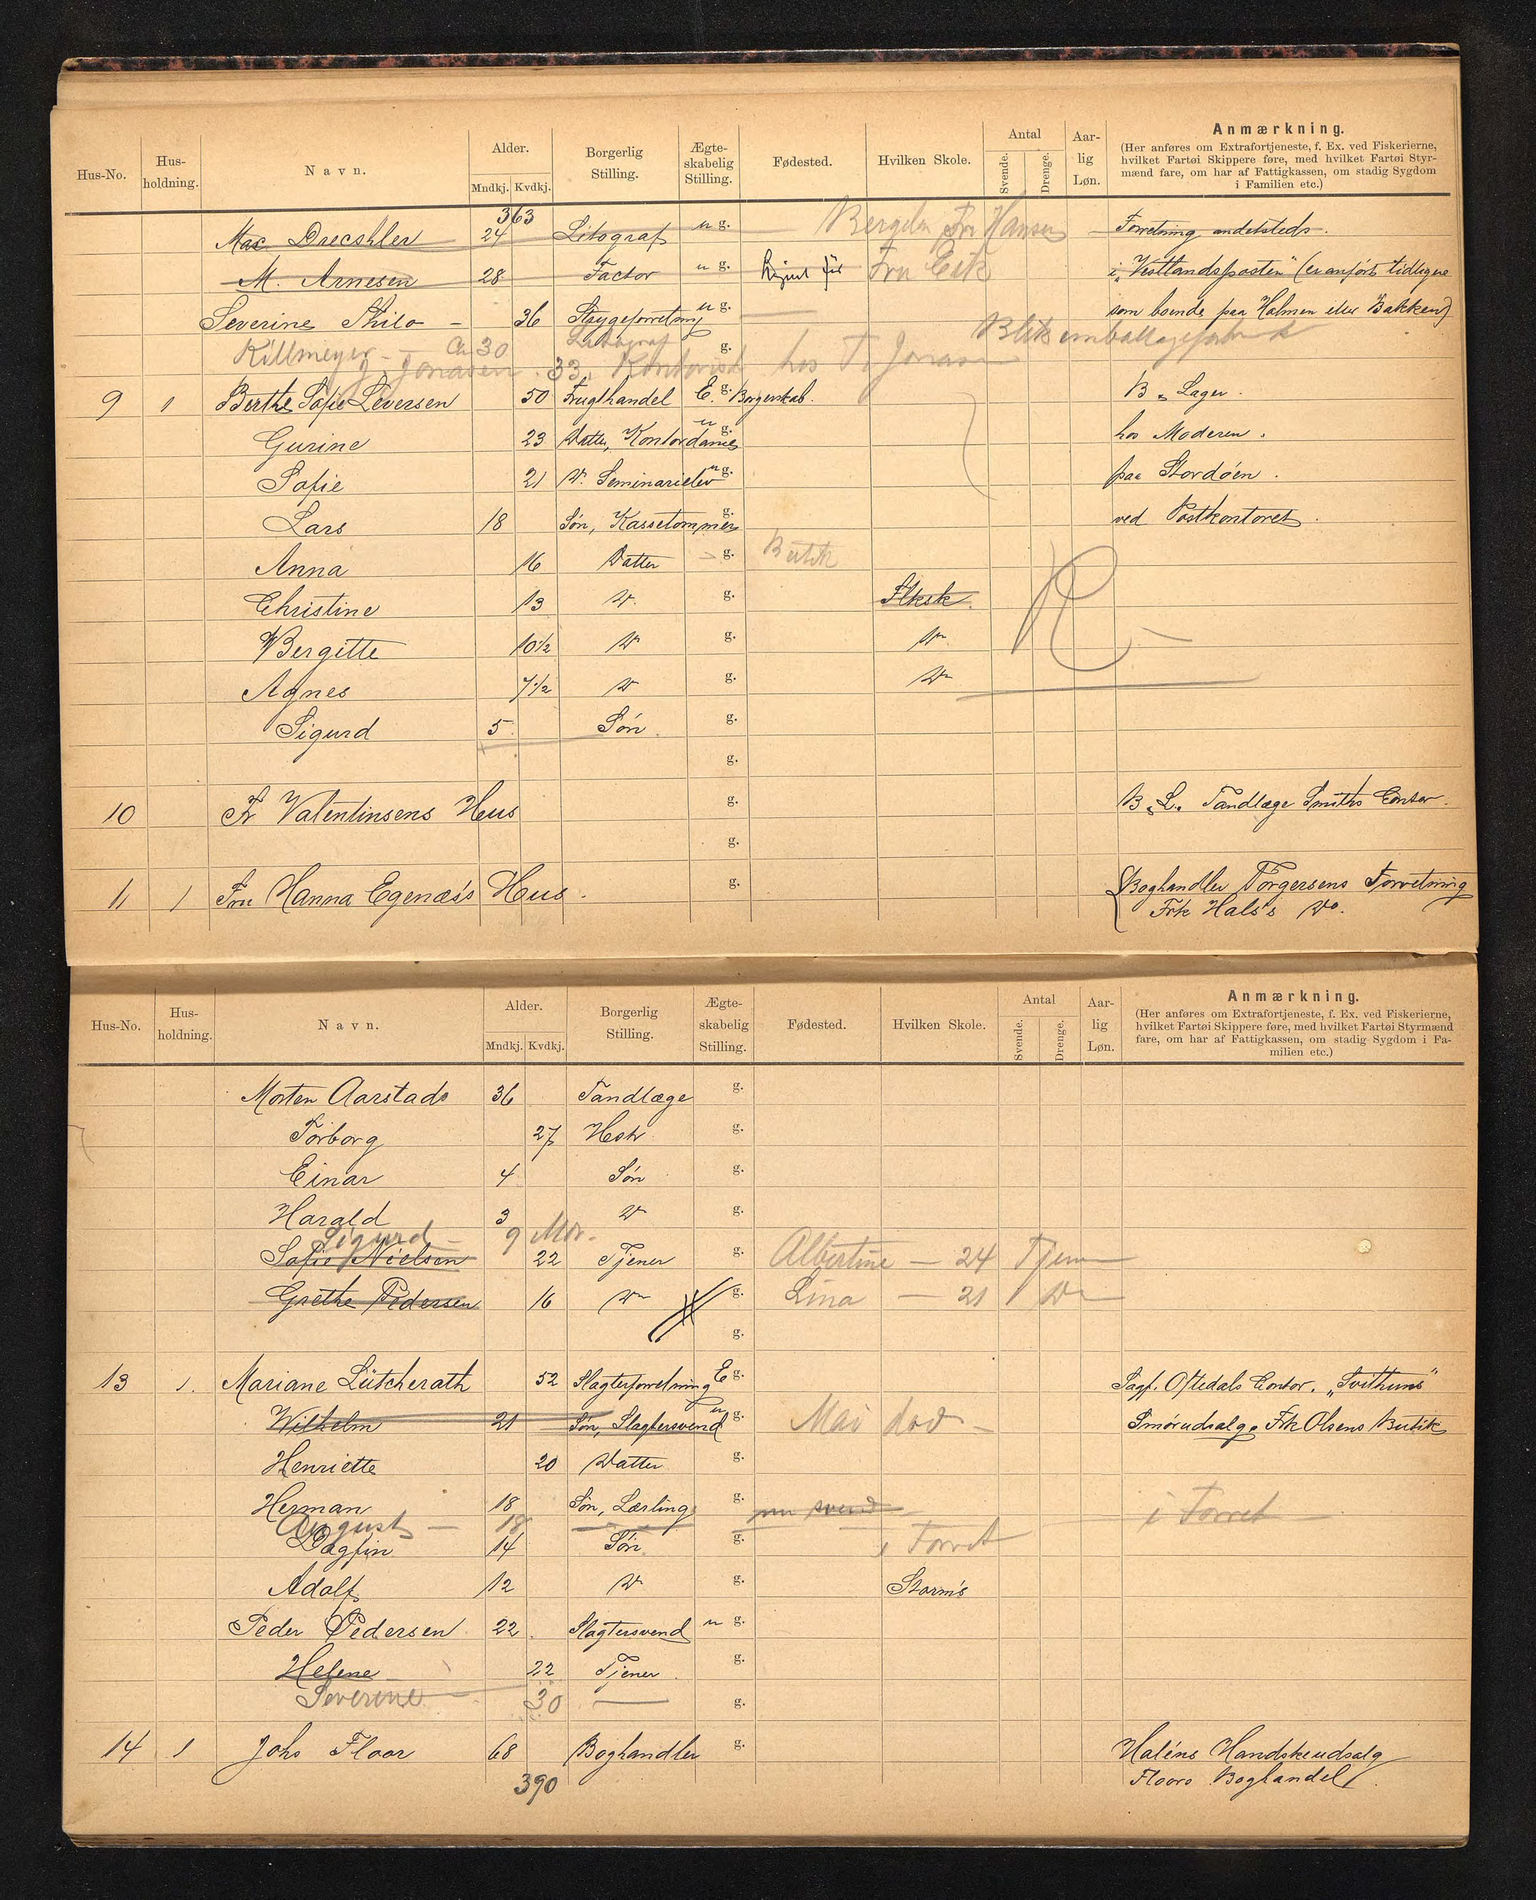 Hus-No. Hus-holdning. Navn. Alder. Mndkj. Kvdkj. Borgerlig Stilling. Ægte-skabelig Stilling. Fødested. Hvilken Skole. Antal Svende. Drenge. Aar-lig Løn. Anmærkning.
(Her anføres om Extrafortjeneste, f. Ex. ved Fiskerierne, hvilket Fartøi Skippere føre, med hvilket Fartøi Styr-mænd fare, om har af Fattigkassen, om stadig Sygdom i Familien etc.)
363
Max Drecshler 24 Litograf u g. Bergder Fru Hansen Forretning andetsteds.
M. Arnesen 28 Factor u g. Fru Eik i "Vestlandsposten" (er anført tidligere
Severine Thilo - 36 Strygeforretning u g. som boende paa Holmen eller Bakken)
Killmeyer - Ca 30 Litograf g. Blikemballagefabrik
J. Jonasen. 33. Kontorist hos T. Jonasen
9 1 Berthe Sofie Leversen 50 Frugthandel E. g. Borgerskab. B. Lager.
Gurine 23 Datter, Kontordame u g. hos Moderen.
Sofie 21 D. Seminarielev u g. paa Stordøen.
Lars 18 Søn, Kassetømmer g. ved Postkontoret.
Anna 16 Datter g. Butik
Christine 13 D. g. Flksk.
Bergitte 10 1/2 D g. D
Agnes 7 1/2 D g. D
Sigurd 5 Søn. g.
g.
10 Fr Valentinsens Hus g. B. L. Tandlæge Smiths Contor.
g.
11 1 Fru Hanna Egenæs's Hus. g. Boghandler Torgersens Forretning
Frk Hals's Do.
Hus-No. Hus-holdning. Navn. Alder. Mndkj. Kvdkj. Borgerlig Stilling. Ægte-skabelig Stilling. Fødested. Hvilken Skole. Antal Svende. Drenge. Aar-lig Løn. Anmærkning.
(Her anføres om Extrafortjeneste, f. Ex. ved Fiskerierne, hvilket Fartøi Skippere føre, med hvilket Fartøi Styrmænd fare, om har af Fattigkassen, om stadig Sygdom i Fa-milien etc.)
Morten Aarstads 36 Tandlæge g.
Torborg 27 Hstr g.
Einar 4 Søn g.
Harald 3 D g.
Sigurd - 9 Mdr.
Sofie Nielsen 22 Tjener g. Albertine - 24 Tjener
Grethe Pedersen 16 D g. Lina - 21 D
g.
13 1. Mariane Lütcherath 52 Slagterforretning E g. Sagf. Oftedals Contor. "Svithuns"
Wilhelm 21 Søn, Slagtersvend u g. Mai død - Smørudsalg, Frk Olsens Butik
Henriette 20 Datter g.
Herman 18 Søn, Lærling g. nu svend i Forret
August - 18
Dagfin 14 Søn g. i Forret
Adolf 12 D g. Storm's
Peder Pedersen 22. Slagtersvend u g.
Helene 22 Tjener g.
Severine 30 g.
14 1 Johs Floor 68 Boghandler g. Haléns Handskeudsalg
390 Floors Boghandel.